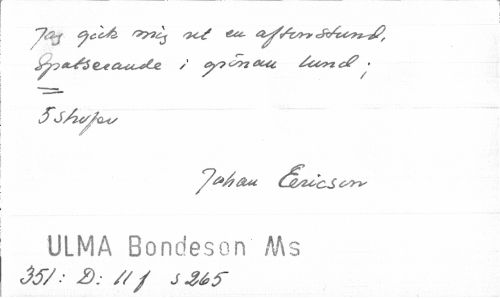 Jag gick mig ut en aftonstund,
Spatserande i grönan lund;
5 strofer
Johan Ericson
ULMA Bondeson Ms
351: D: 11 f s 265